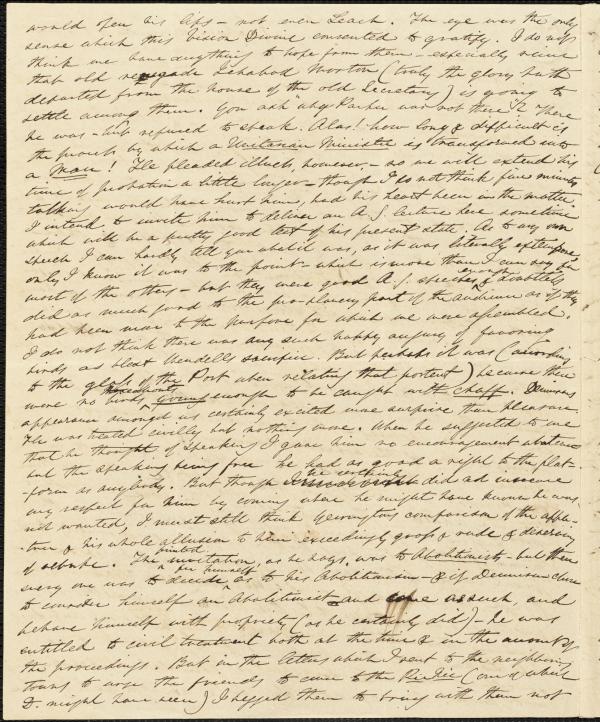 would open his lips - not even Leach. The eye was the only
sense which this Vision Divine consented to gratify. I do not
think we have anything to hope from them - especially since
that old renegade Ichabod Morton (truly the glory hath
departed from the house of the old Secretary) is going to
settle among them. You ask why Parker was not there? There
he was - but refused to speak. Alas! how long & difficult is
the process by which a Unitarian Minister is transformed into
a Man! He pleaded illness, however, - so we will extend his
time of probation a little longer - though I do not think five minutes
talking would have hurt him, had his heart been in the matter.
I intend to invite him to deliver an A. S. lecture here sometime
which will be a pretty good test of his present state. As to my own
speech I can hardly tell you what it was, as it was literally extempore
only I know it was to the point - which is more than I can say for
most of the others - but they were good A. S. speeches enough & doubtless
did as much good to the pro-slavery part of the audience as if they
had been more to the purpose for which we were assembled.
I do not think there was any such happy augury of favoring
birds as bleat Wendell's sacrifice. But perhaps it was (according
to the gloss of the Post when relating that portent) because there
were no birds young enough to be caught with chaff.
appearance amongst us certainly excited more surprise than pleasure.
He was treated civilly but nothing more. When he suggested to me
that he thought of speaking I gave him no encouragement
but the speaking being free he had as good a right to the plat-
-form as anybody. But though he certainly did
my respect for him by coming where he might have known he was
not wanted, I must still think comparison of the apple-
-tree & his whole allusion to him exceedingly gross & rude & deserving
of rebuke. The printed invitation, as he says, was to Abolitionists - but then
every one was to decide for himself as to his Abolitionism - & if chose
to consider himself an Abolitionist and come as such, and
behave himself with propriety (as he certainly did) - he was
entitled to civil treatment both at the time & in the account of
the proceedings. But in the letters which I sent to the neighboring
towns to urge the friends to come to the (one of which
I might have seen) I begged them to bring with them not